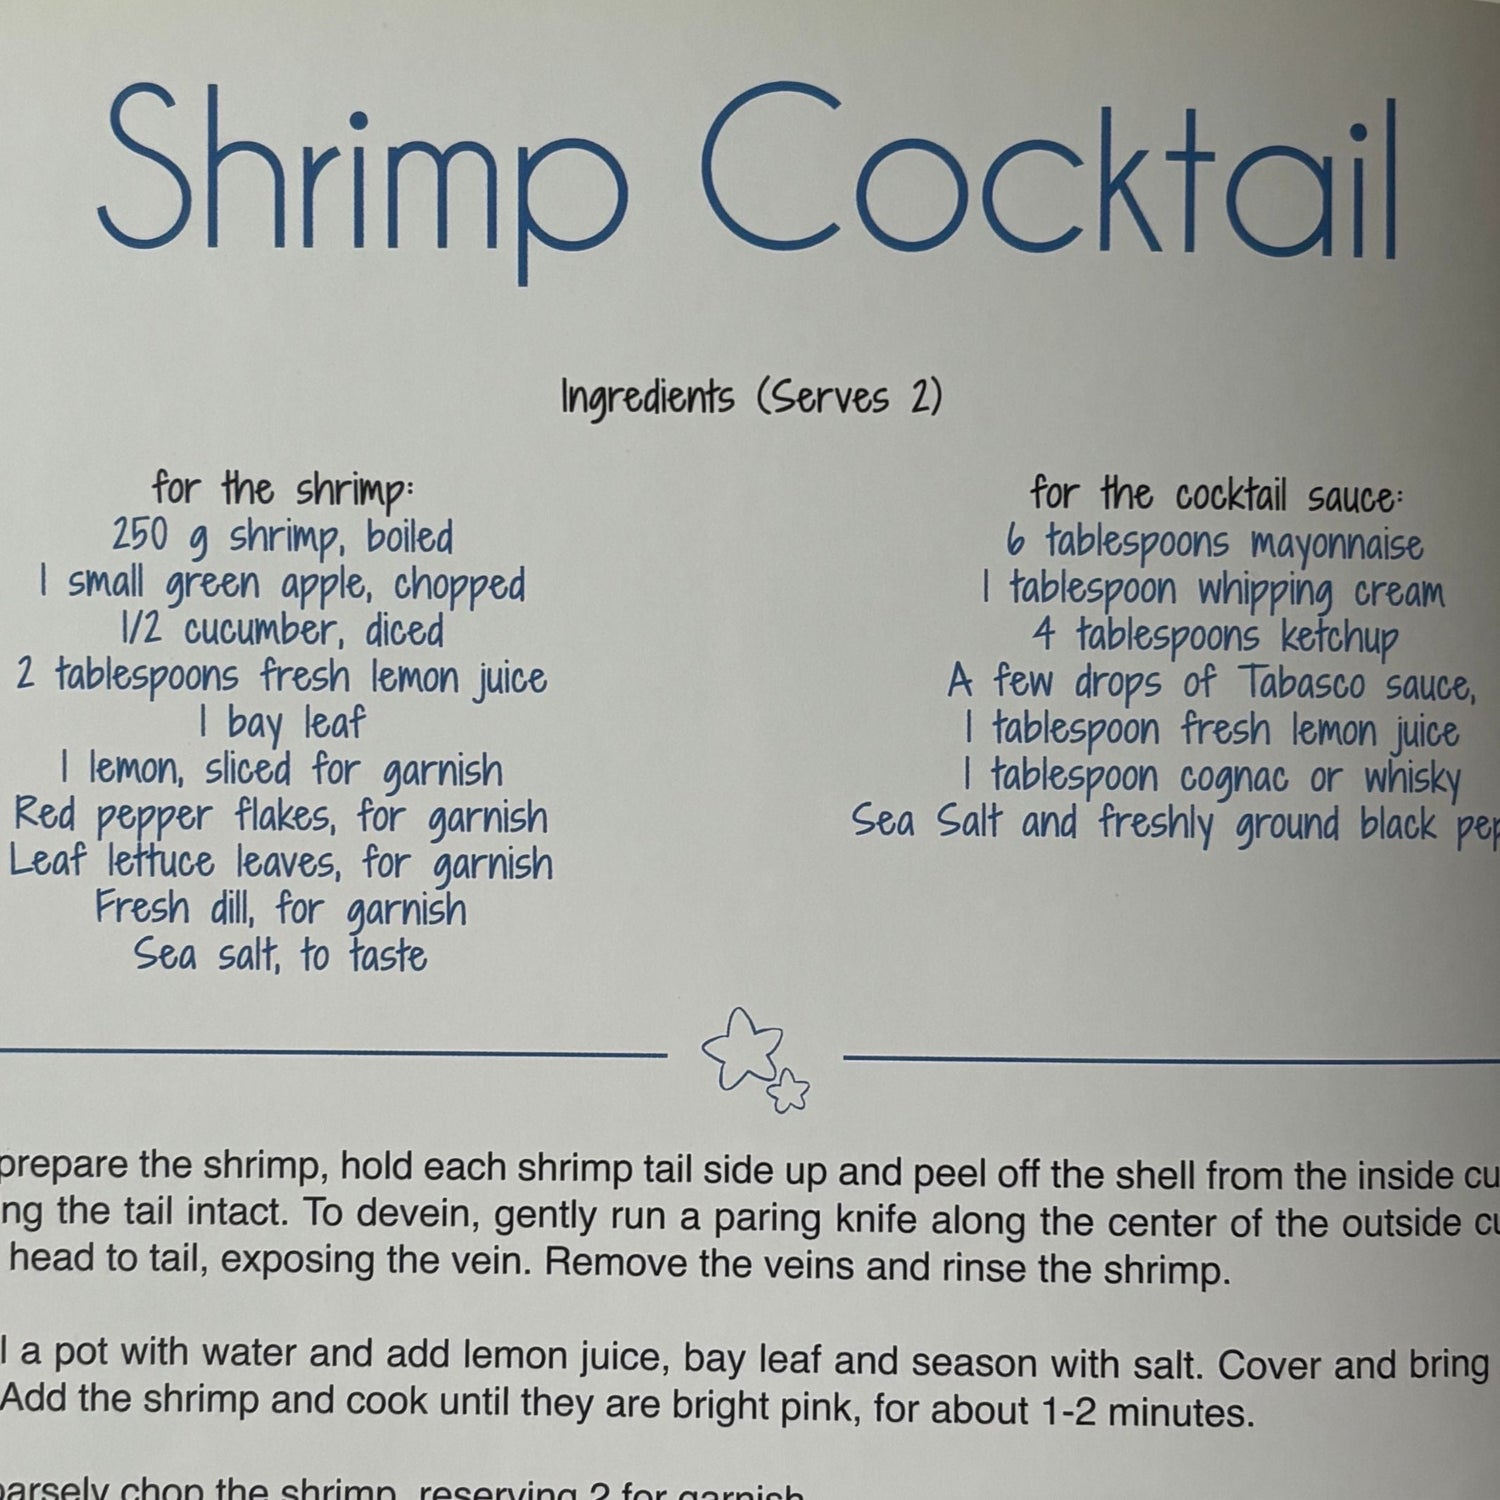 Shrimp Cocktail
Ingredients (Serves 2)
for the shrimp:
250 g shrimp, boiled
1 small green apple, chopped
1/2 cucumber, diced
2 tablespoons fresh lemon juice
1 bay leaf
1 lemon, sliced for garnish
Red pepper flakes, for garnish
Leaf lettuce leaves, for garnish
Fresh dill, for garnish
Sea salt, to taste
for the cocktail sauce:
6 tablespoons mayonnaise
1 tablespoon whipping cream
4 tablespoons ketchup
A few drops of Tabasco sauce,
1 tablespoon fresh lemon juice
1 tablespoon cognac or whisky
Sea Salt and freshly ground black pep
prepare the shrimp, hold each shrimp tail side up and peel off the shell from the inside cu
ng the tail intact. To devein, gently run a paring knife along the center of the outside cu
head to tail, exposing the vein. Remove the veins and rinse the shrimp.
l a pot with water and add lemon juice, bay leaf and season with salt. Cover and bring
Add the shrimp and cook until they are bright pink, for about 1-2 minutes.
arsely chop the shrimp, reserving 2 for garnish